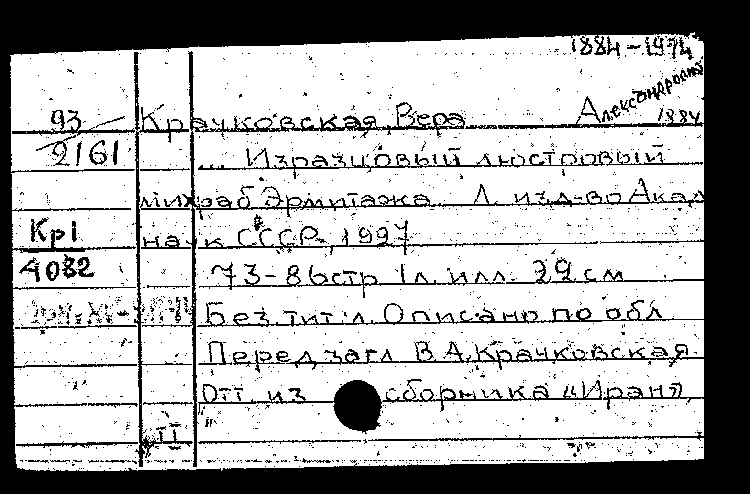 1884-1974
93 Крачковская, Вера Александровна 1884
2161 ... Изразцовый люстровый
михраб Эрмитажа Л. изд-во Акад
Кр1 наук СССР, 1927
4082 73-86стр 1л. илл. 29 см
Без тит. л. Описано по обл
Перед загл В.А.Крачковская
Отт. из сборника "Иран",
II